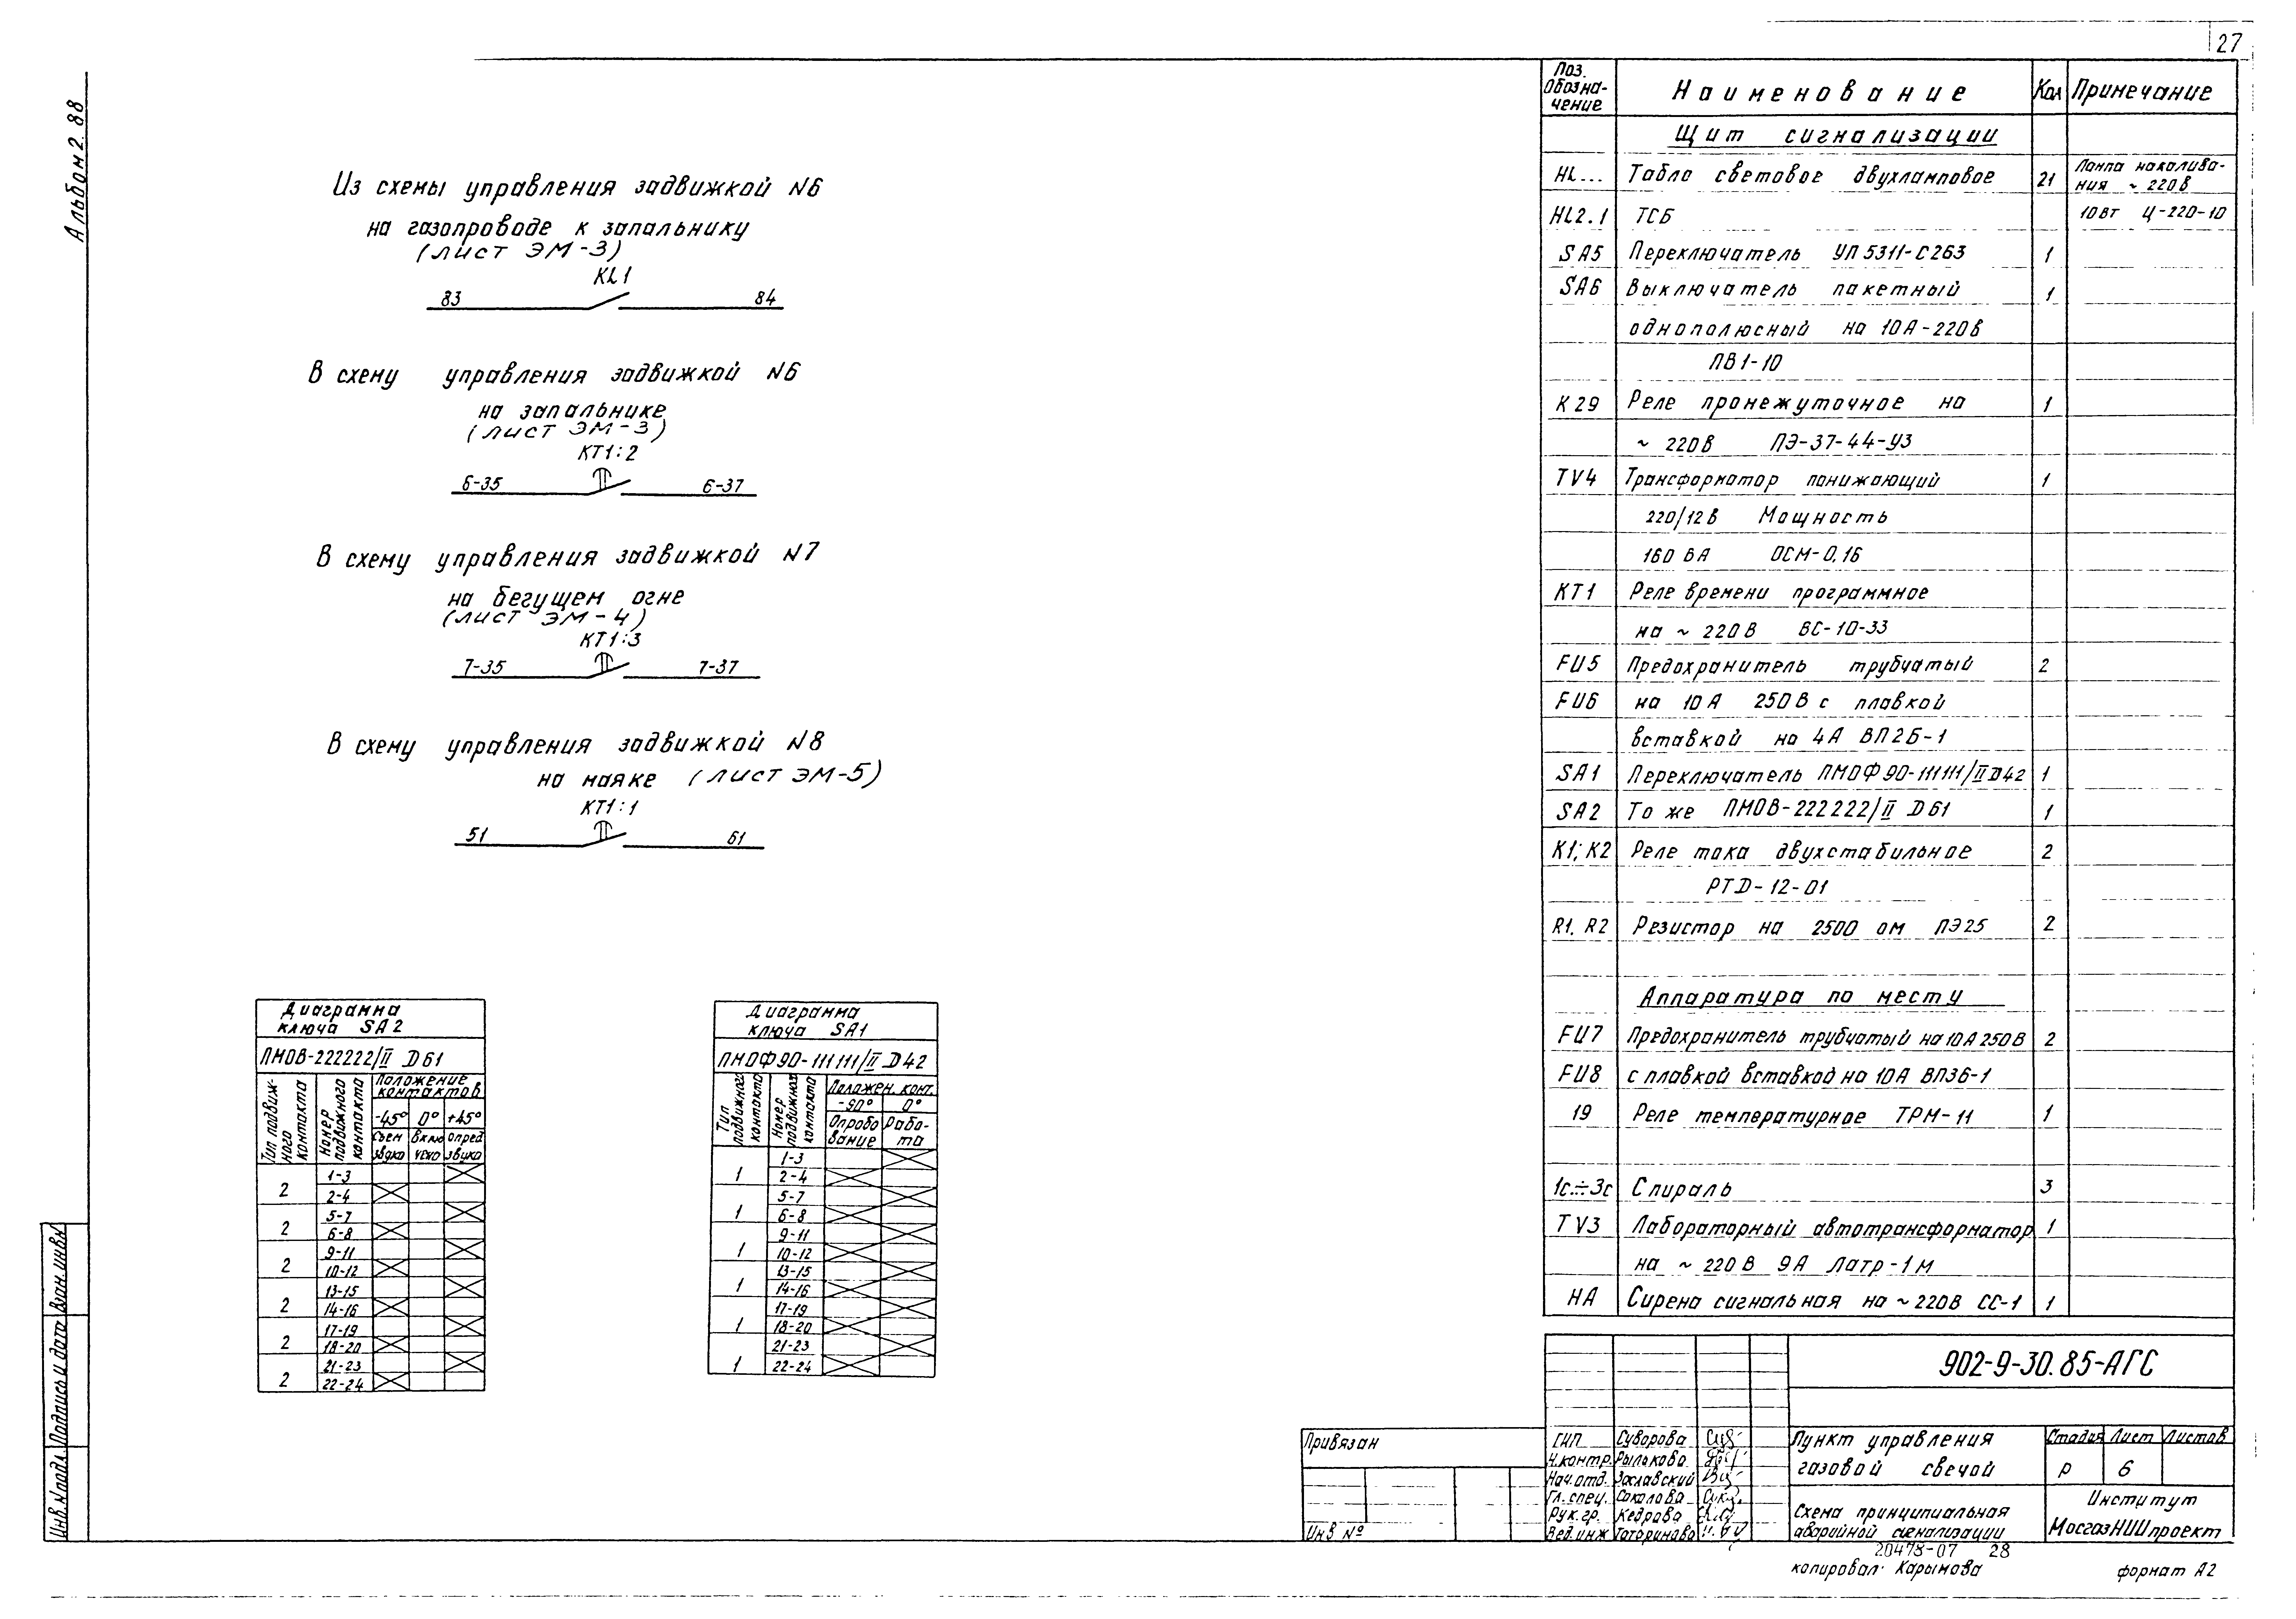 27
Альбом 2. 88
Из схемы управления задвижкой N6
на газопроводе к запальнику
(лист ЭМ-3)
KL1
83 84
В схему управления задвижкой N6
на запальнике
(лист ЭМ-3)
КТ1:2
6-35 6-37
В схему управления задвижкой N7
на бегущем огне
(лист ЭМ-4)
КТ1:3
7-35 7-37
В схему управления задвижкой N8
на маяке (лист ЭМ-5)
КТ1:1
51 61
Диаграмма
ключа SA2
ПМОВ-222222/II D61
Тип подвижного контакта
Номер подвижного контакта
Положение контактов
-45° 0° +45°
Съем звука
Включено
Опред звука
2 1-3
2-4
2 5-7
6-8
2 9-11
10-12
2 13-15
14-16
2 17-19
18-20
2 21-23
22-24
Диаграмма
ключа SA1
ПМОФ90-111111/II D42
Тип подвижного контакта
Номер подвижного контакта
Положен. конт.
-90° 0°
Опробование
Работа
1 1-3
2-4
1 5-7
6-8
1 9-11
10-12
1 13-15
14-16
1 17-19
18-20
1 21-23
22-24
Поз. Обозна-чение Наименование Кол Примечание
Щит сигнализации
HL... Табло световое двухламповое 21 Лампа накалива-
ния ~ 220в
HL2.1 ТСБ 10вт Ц-220-10
SA5 Переключатель УП5311-С263 1
SA6 Выключатель пакетный 1
однополюсный на 10А-220в
ПВ1-10
К29 Реле промежуточное на 1
~ 220в ПЭ-37-44-У3
TV4 Трансформатор понижающий 1
220/12в Мощность
160 ВА ОСМ-0,16
КТ1 Реле времени программное
на ~ 220В ВС-10-33
FU5 Предохранитель трубчатый 2
FU6 на 10А 250В с плавкой
вставкой на 4А ВП2Б-1
SA1 Переключатель ПМОФ90-111111/II D42 1
SA2 То же ПМОВ-222222/II D61 1
К1; К2 Реле тока двухстабильное 2
РТД-12-01
R1, R2 Резистор на 2500 ом ПЭ25 2
Аппаратура по месту
FU7 Предохранитель трубчатый на 10А 250В 2
FU8 с плавкой вставкой на 10А ВП3Б-1
19 Реле температурное ТРМ-11 1
1с÷3с Спираль 3
TV3 Лабораторный автотрансформатор 1
на ~ 220В 9А Латр-1м
НА Сирена сигнальная на ~ 220В СС-1 1
902-9-30.85-АГС
ГИП Суворова
Н.контр. Рылькова
Нач.отд. Заславский
Гл.спец. Соколова
Рук.гр. Кедрова
Вед.инж Таторинова
Пункт управления
газовой свечой
Стадия Лист Листов
Р 6
Схема принципиальная
аварийной сигнализации
Институт
МосгазНИИпроект
Привязан
Инв №
Инв.Nподл. Подпись и дата Взам.инвN
20478-07 28
копировал: Карымова формат А2